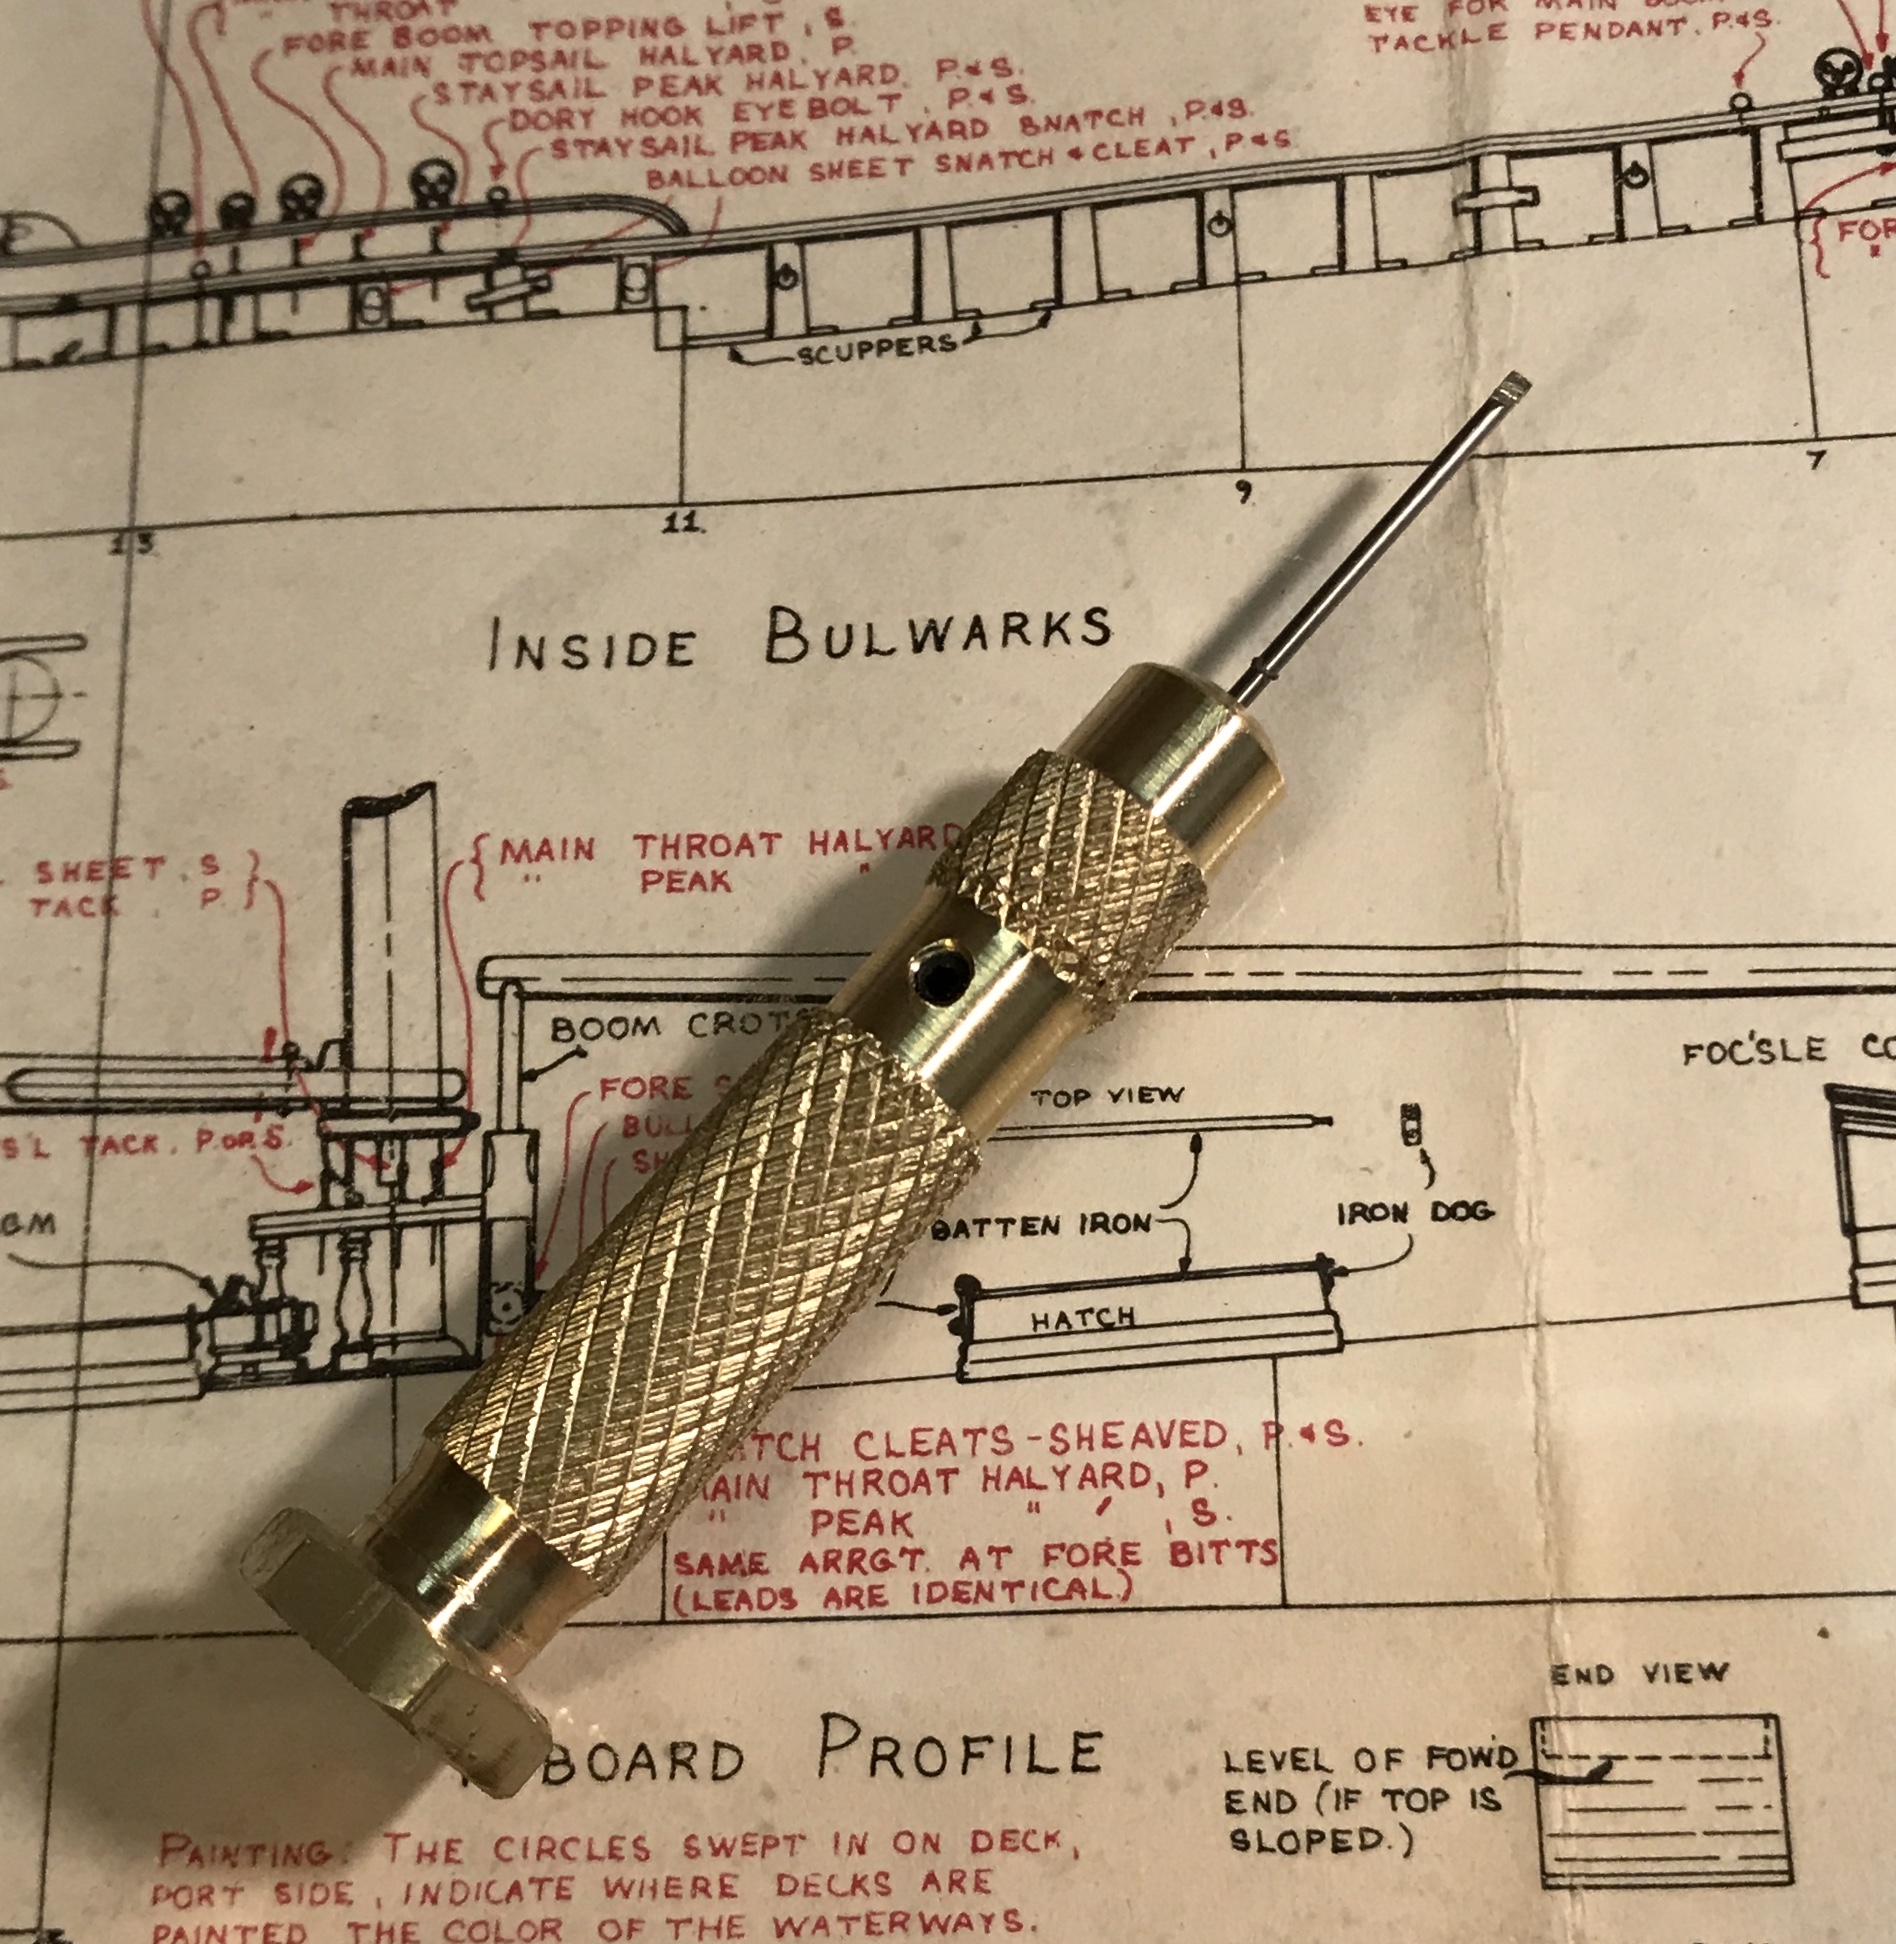 THROAT
FORE BOOM TOPPING LIFT, S.
MAIN TOPSAIL HALYARD, P.
STAYSAIL PEAK HALYARD. P.&S.
DORY HOOK EYEBOLT, P.& S.
STAYSAIL PEAK HALYARD SNATCH, P.&S.
BALLOON SHEET SNATCH & CLEAT, P&S
EYE FOR MAIN BOOM
TACKLE PENDANT, P.&S.
FOR
SCUPPERS
13
11.
9
7
INSIDE BULWARKS
SHEET, S
TACK, P.
MAIN THROAT HALYARD
" PEAK "
BOOM CROT
FOC'SLE CO
FORE S
BULL
SH
TOP VIEW
S'L TACK. P.OR S.
BATTEN IRON
IRON DOG
HATCH
ATCH CLEATS-SHEAVED, P.&S.
MAIN THROAT HALYARD, P.
" PEAK " ", S.
SAME ARRGT. AT FORE BITTS
(LEADS ARE IDENTICAL)
END VIEW
BOARD PROFILE
LEVEL OF FOW'D
END (IF TOP IS
SLOPED.)
PAINTING: THE CIRCLES SWEPT IN ON DECK,
PORT SIDE, INDICATE WHERE DECKS ARE
PAINTED THE COLOR OF THE WATERWAYS.